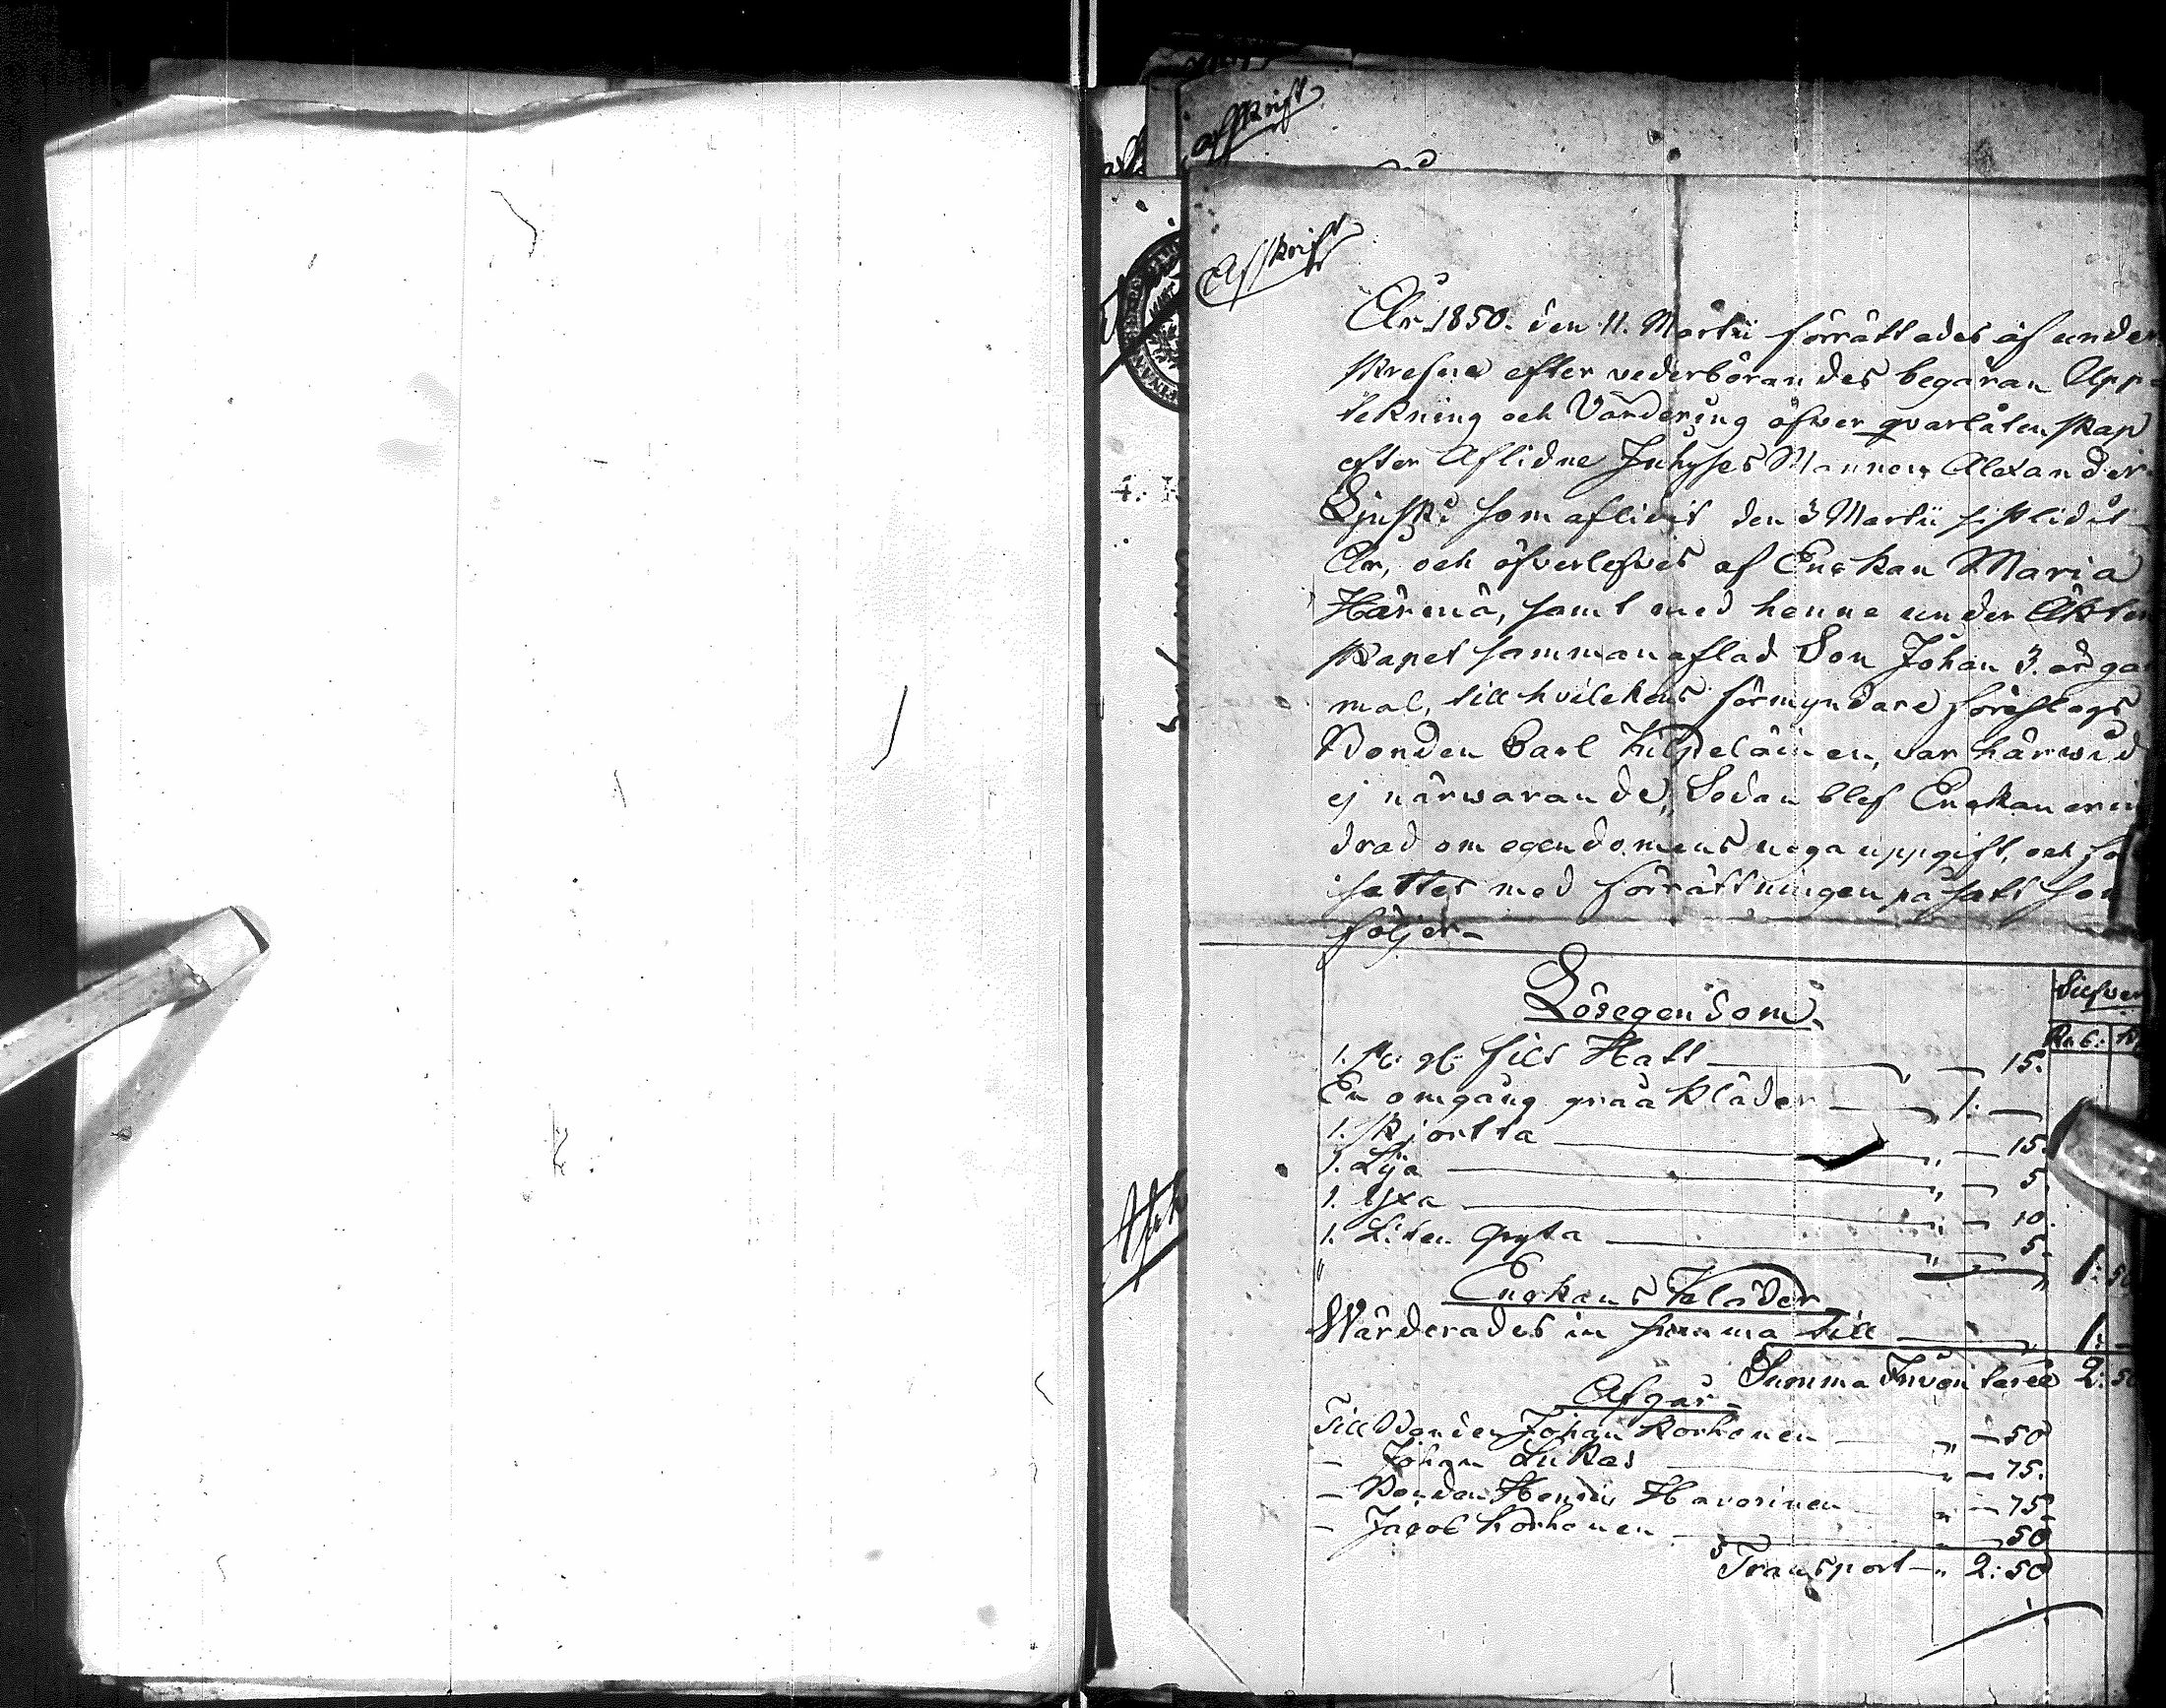 afskrift
Afskrift
År 1850. den 11. Martii förrättades af under
skrefne efter vederbörandes begäran Upp-
tekning och Värdering öfwer qvarlåtenskap
efter Aflidne Inhyses Mannen Alexander
som aflidit den 3 Martii sistlidit
År, och öfverlefves af Enckan Maria
Härmä, samt med henne under Äkten
skapet sammanaflad Son Johan 3. år ga
mal, till hvilckens förmyndare föreslogs
Bonden Carl Kilpeläinen, var härwid
ej närwarande, Sedan blef Enckan erin
drad om egendomens uppgift, och
settes med förrättningen på satt som
följer-
Lösegendom.
Silfver
Rub:
1. filt Hatt 15.
En omgång gråa Kläder 1. —
1. skjortta 15.
1. Lija 5.
1. Yxa 10.
1. Liten gryta 5.
1: 50
Enckans Kläder
Wärderades in summa till 1: —
Summa Inventarii 2: 50
Afgår-
Till Bonden Johan Korhonen — 50
— Johan Lukas — 75.
— Bonden Henric Havorinen — 75
— Jacob Korhonen — 50
Transport — 2: 50